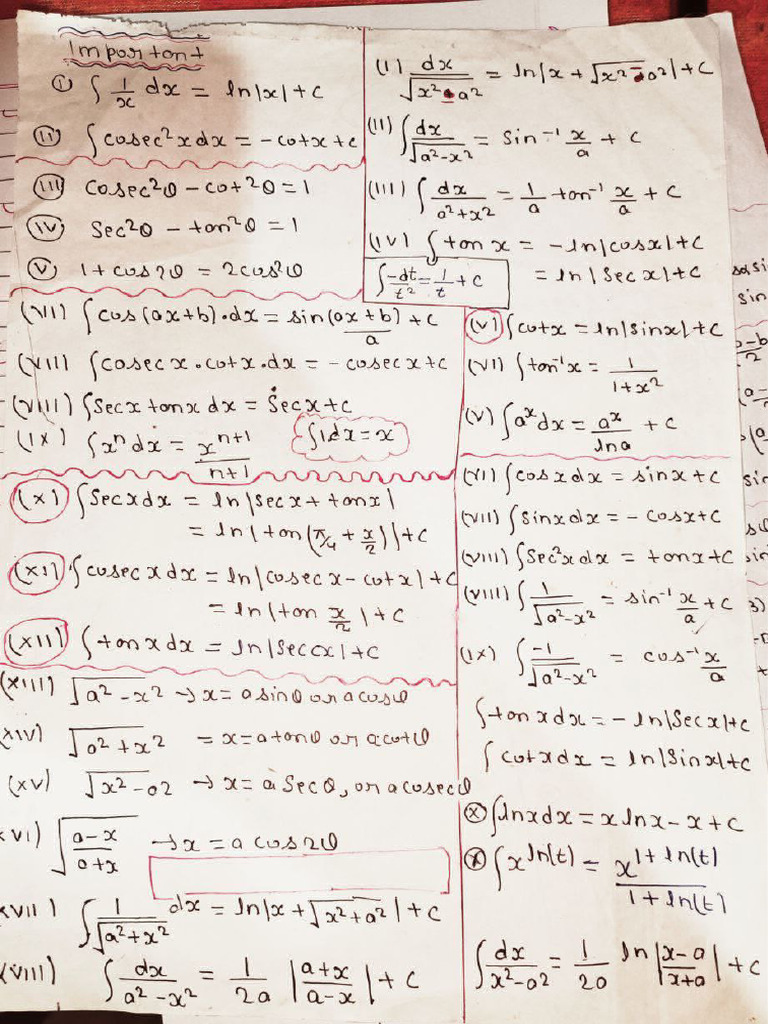 Important
(i) ∫ 1/x dx = ln|x| + c
(ii) ∫ cosec²x dx = -cotx + c
(iii) cosec²θ - cot²θ = 1
(iv) sec²θ - tan²θ = 1
(v) 1 + cos2θ = 2cos²θ
(vii) ∫ cos(ax+b)·dx = sin(ax+b)/a + c
(viii) ∫ cosec x·cotx·dx = -cosecx + c
(viii) ∫ Secx tanx dx = Secx + c
(ix) ∫ xⁿ dx = xⁿ⁺¹/n+1
∫1dx = x
(x) ∫ Secxdx = ln|secx + tanx|
= ln|tan(π/4 + x/2)| + c
(xi) ∫ cosec x dx = ln|cosecx - cotx| + c
= ln|tan x/2| + c
(xii) ∫ tanxdx = ln|Secx| + c
(xiii) √a²-x² → x = a sinθ or a cosθ
(xiv) √a²+x² = x = a tanθ or a cotθ
(xv) √x²-a2 → x = a Secθ, or a cosecθ
xvi) √a-x/a+x → x = a cos2θ
xvii) ∫ 1/√a²+x² dx = ln|x + √x²+a²| + c
(viii) ∫ dx/a²-x² = 1/2a |a+x/a-x| + c
(i) dx/√x²-a² = ln|x + √x²-a²| + c
(ii) ∫ dx/√a²-x² = Sin⁻¹ x/a + c
(iii) ∫ dx/a²+x² = 1/a tan⁻¹ x/a + c
(iv) ∫ tanx = -ln|cosx| + c
= ln|Secx| + c
∫ -dt/t² = 1/t + c
(v) ∫ cotx = ln|sinx| + c
(vi) ∫ tan⁻¹x = 1/1+x²
(v) ∫ aˣ dx = aˣ/lna + c
(vi) ∫ cosxdx = sinx + c
(vii) ∫ sinxdx = -cosx + c
(viii) ∫ Sec²xdx = tanx + c
(viii) ∫ 1/√a²-x² = sin⁻¹ x/a + c
(ix) ∫ -1/√a²-x² = cos⁻¹ x/a
∫ tanxdx = -ln|Secx| + c
∫ cotxdx = ln|Sinx| + c
(x) ∫ lnxdx = xlnx - x + c
(x) ∫ x^ln(t) = x^1+ln(t)/1+ln(t)
∫ dx/x²-a2 = 1/2a ln|x-a/x+a| + c